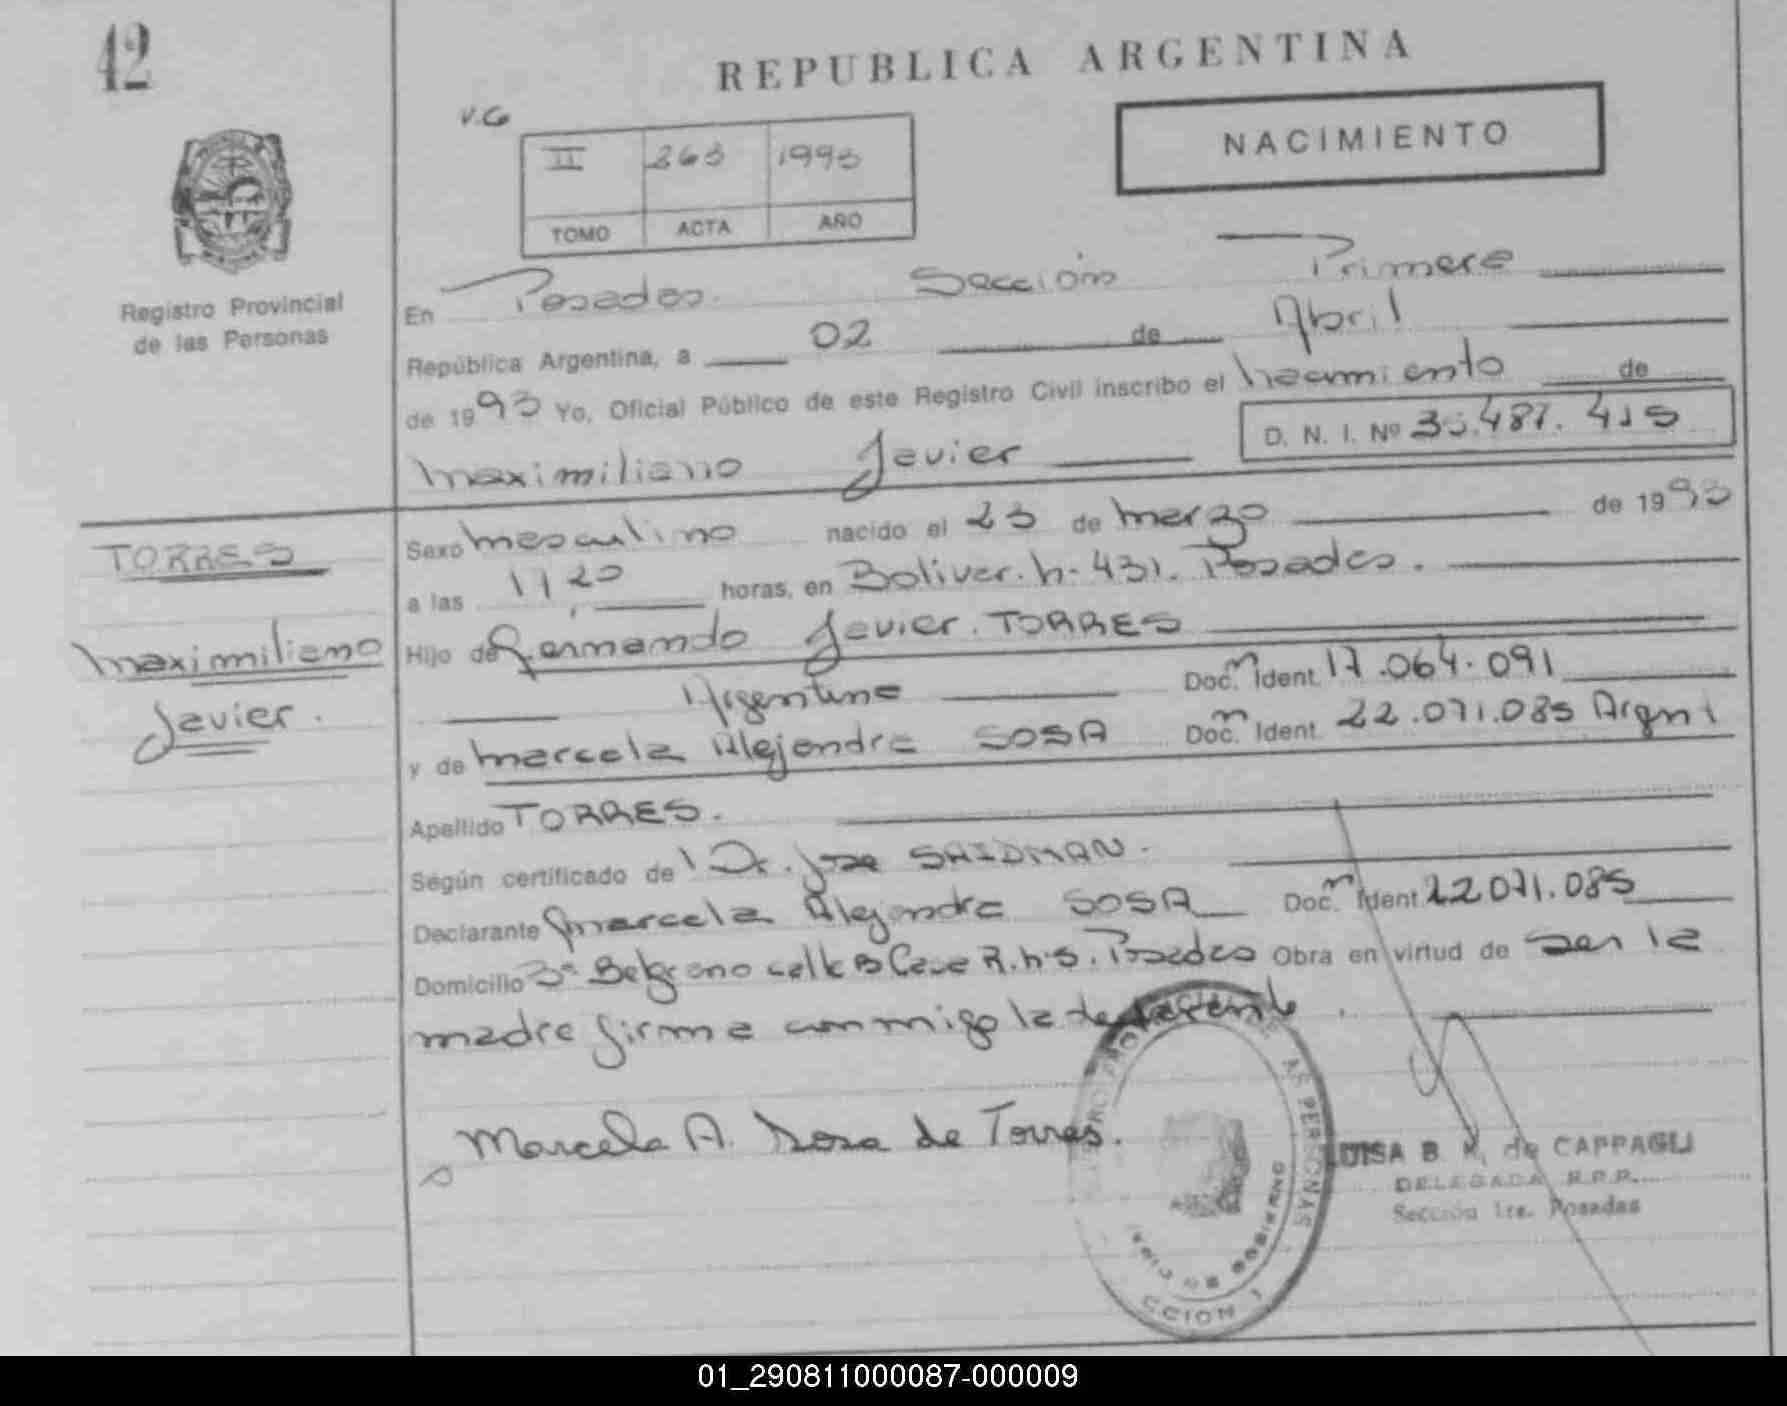 42
REPUBLICA ARGENTINA
V.G
NACIMIENTO
II 263 1993
TOMO ACTA AÑO
Registro Provincial
de las Personas
En Posadas. Sección Primera
República Argentina, a 02 de Abril
de 1993 Yo, Oficial Público de este Registro Civil inscribo el nacimiento de
D. N. I. Nº
Maximiliano Javier
TORRES
Maximiliano
Javier.
Sexo Masculino nacido el 23 de Marzo de 1993
a las 11,20 horas, en Bolivar. n- 431. Posadas.
Hijo de Armando Javier. TORRES
Argentino Doc. Ident. 17.064.091
y de Marcela Alejandra SOSA Doc. Ident. 22.071.085
Apellido TORRES.
Según certificado de Dr. Jose SAIDMAN.
Declarante Marcela Alejandra SOSA Doc. Ident. 22.071.085
Domicilio Belgrano calle Casa Posadas Obra en virtud de ser la
madre firma conmigo la declarante.
Marcela A. Sosa de Torres.
LUISA B. K. de CAPPAGLI
DELEGADA R.P.P.
Sección 1ra. Posadas
01_290811000087-000009